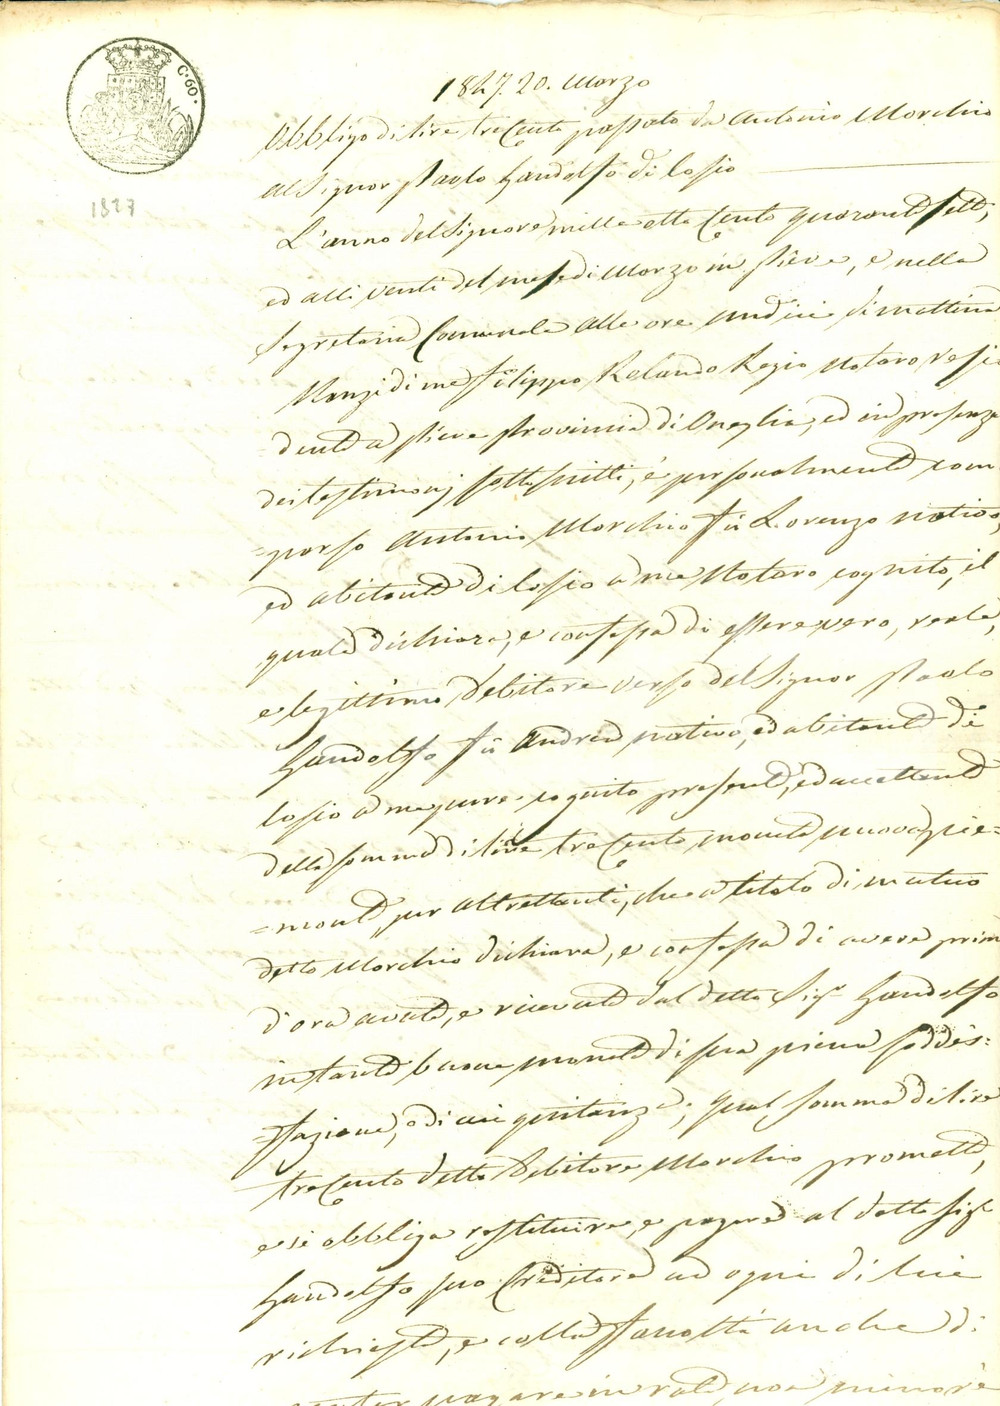 C. 60.
1827
1847. 20. Marzo
Obbligo di lire trecento passato da Antonio Morchio
al Signor Paolo Gandolfo di Lossio
L'anno del Signore mille otto cento quarantasette,
ed alli venti del mese di Marzo in Pieve, e nella
Segretaria Comunale alle ore undici di mattina
Nanzi di me Filippo Relando Regio Notaro resi
=dente a Pieve Provincia di Oneglia, ed in presenza
dei testimonj sottoscritti, è personalmente com
=parso Antonio Morchio fù Lorenzo nativo,
ed abitante di Lossio a me Notaro cognito, il
quale dichiara, e confessa di essere vero, reale,
e legittimo debitore verso del Signor Paolo
Gandolfo fù Andrea nativo, ed abitante di
Lossio a me pure cognito presente, ed accettante
della somma di lire trecento moneta nuova pie=
=monte, per altrettanti, che a titolo di mutuo
detto Morchio dichiara, e confessa di avere prim
d'ora avute, e ricevute dal detto Sigr Gandolfo
in tante buone monete di sua piena soddis=
=fazione, e di cui quitanza; qual somma di lire
trecento detto debitore Morchio promette,
e si obbliga restituire, e pagare al detto Sigr
Gandolfo suo Creditore ad ogni di lui
richiesta, e colla facoltà anche di
poter pagare in rate non minori